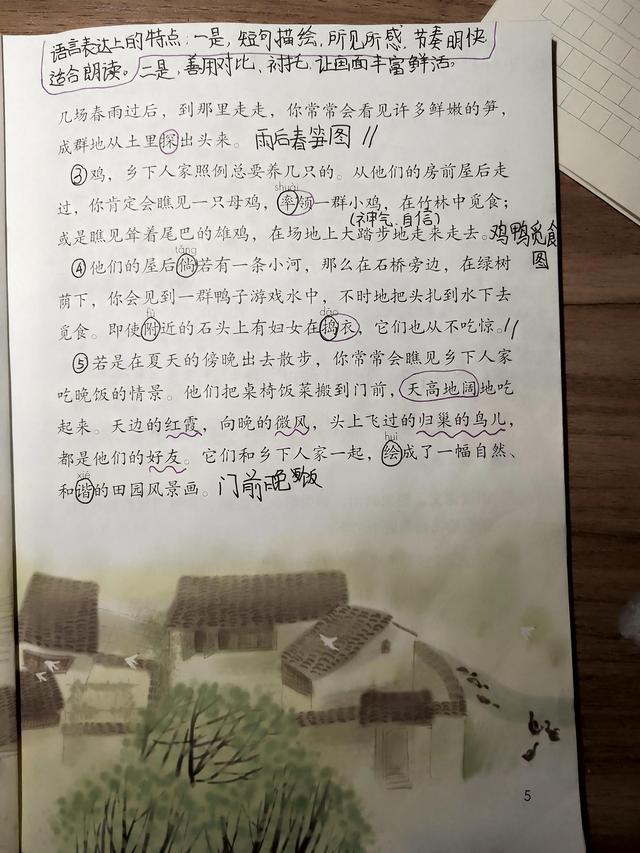 语言表达上的特点:一是,短句描绘,所见所感,节奏明快,
适合朗读。二是,善用对比、衬托,让画面丰富鲜活。
几场春雨过后,到那里走走,你常常会看见许多鲜嫩的笋,
成群地从土里探出头来。雨后春笋图
③鸡,乡下人家照例总要养几只的。从他们的房前屋后走
shuài
过,你肯定会瞧见一只母鸡,率领一群小鸡,在竹林中觅食;
(神气、自信)
或是瞧见耸着尾巴的雄鸡,在场地上大踏步地走来走去。鸡鸭觅食
图
tǎng
④他们的屋后倘若有一条小河,那么在石桥旁边,在绿树
荫下,你会见到一群鸭子游戏水中,不时地把头扎到水下去
fù dǎo
觅食。即使附近的石头上有妇女在捣衣,它们也从不吃惊。
⑤若是在夏天的傍晚出去散步,你常常会瞧见乡下人家
吃晚饭的情景。他们把桌椅饭菜搬到门前,天高地阔地吃
起来。天边的红霞,向晚的微风,头上飞过的归巢的鸟儿,
huì
都是他们的好友。它们和乡下人家一起,绘成了一幅自然、
xié
和谐的田园风景画。门前晚饭
5